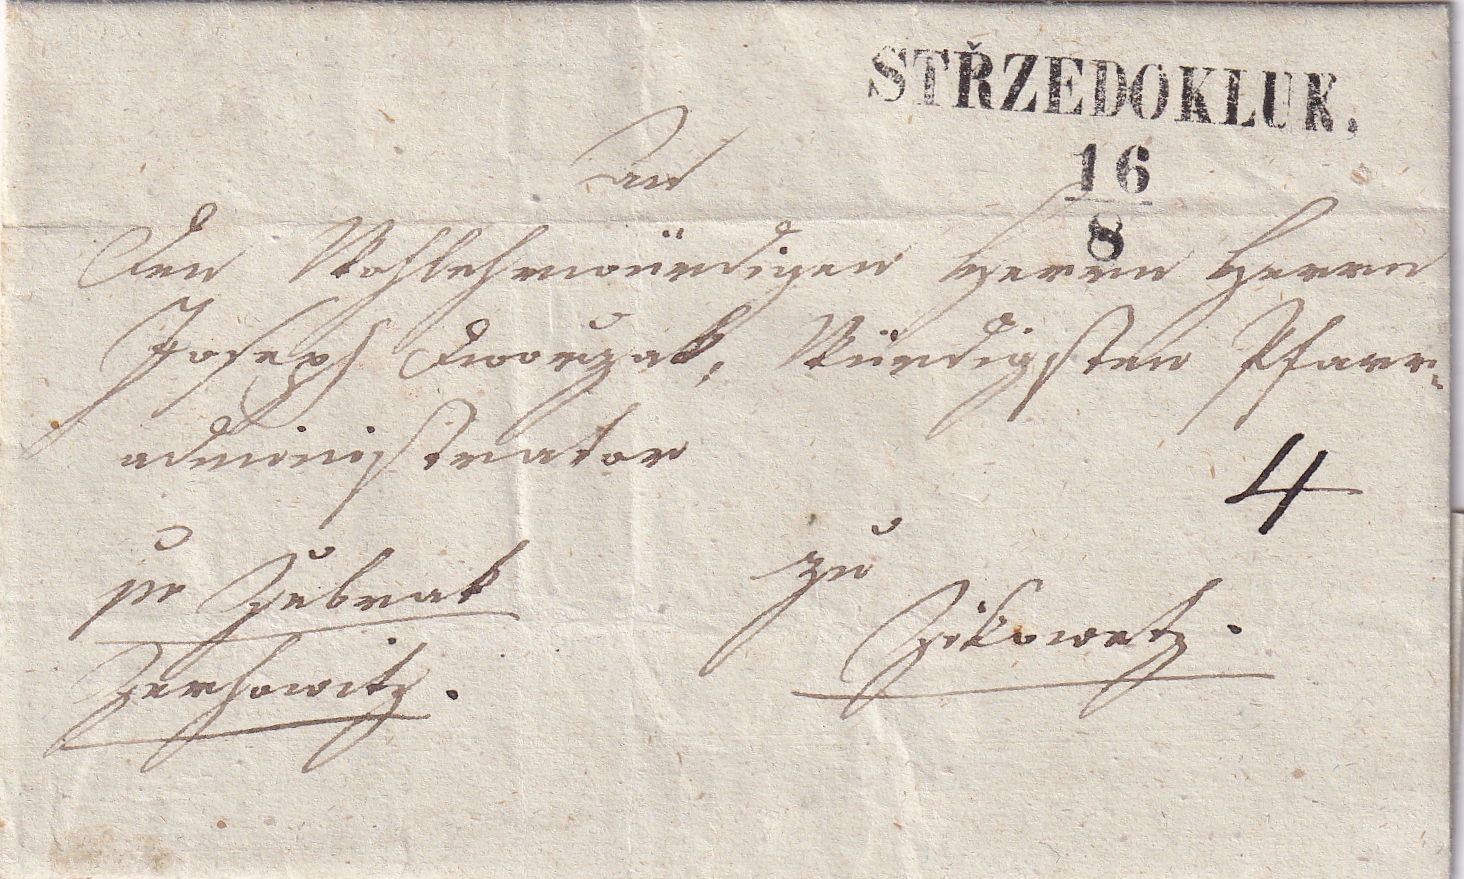 STŘZEDOKLUK.
16
8
An
Den Wohlehrwürdigen Herrn Herrn
Joseph Dworzak, Würdigsten Pfarr-
administrator
pr Zebrak
zu
Zerhowitz.
4